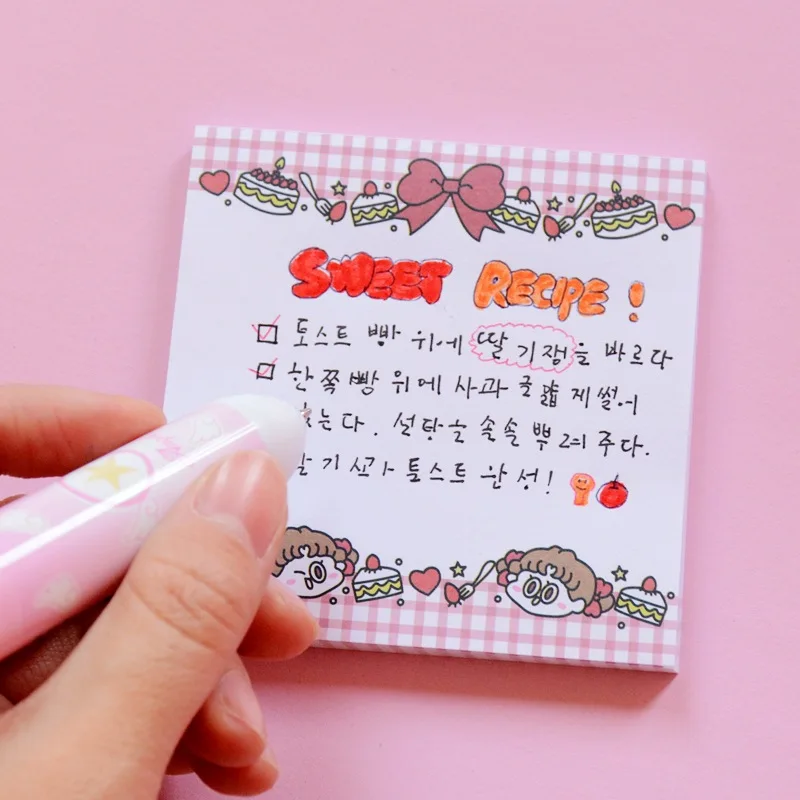 SWEET RECIPE!
토스트 빵 위에 딸기잼을 바르다
한쪽빵 위에 사과 글 얇게썰어
는다. 설탕을 솔솔 뿌려주다.
기사과 톨스트 완성!